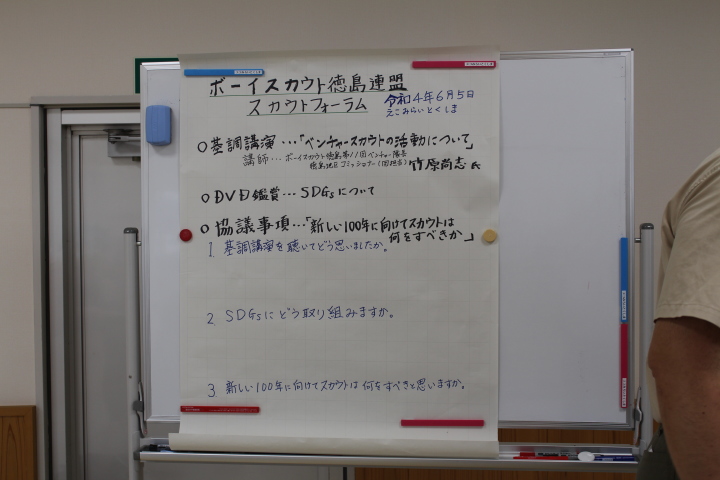 ボーイスカウト徳島連盟
スカウトフォーラム
令和4年6月5日
えこみらいとくしま
○基調講演…「ベンチャースカウトの活動について」
講師…ボーイスカウト徳島第11団ベンチャー隊長
徳島地区コミッショナー(団担当) 竹原尚志氏
○DVD鑑賞…SDGsについて
○協議事項…「新しい100年に向けてスカウトは
何をすべきか」
1. 基調講演を聴いてどう思いましたか。
2. SDGsにどう取り組みますか。
3. 新しい100年に向けてスカウトは何をすべきと思いますか。